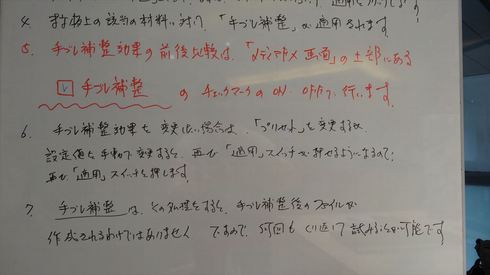 4. 対して「手ブレ補整」が適用されます
5. 手ブレ補整効果の前後比較は、「メディアFX画面」の上部にある
☑ 手ブレ補整 のチェックマークのON・OFFで行います。
6. 手ブレ補整効果を変更したい場合は、「プリセット」を変更するか
設定値を手動で変更すると、再び「適用」スイッチが押せるようになるので、
再び「適用」スイッチを押します。
7. 手ブレ補整は、その処理をすると、手ブレ補整後のファイルが
作成されるわけではありません ですので、何回もくり返して試みることが可能です